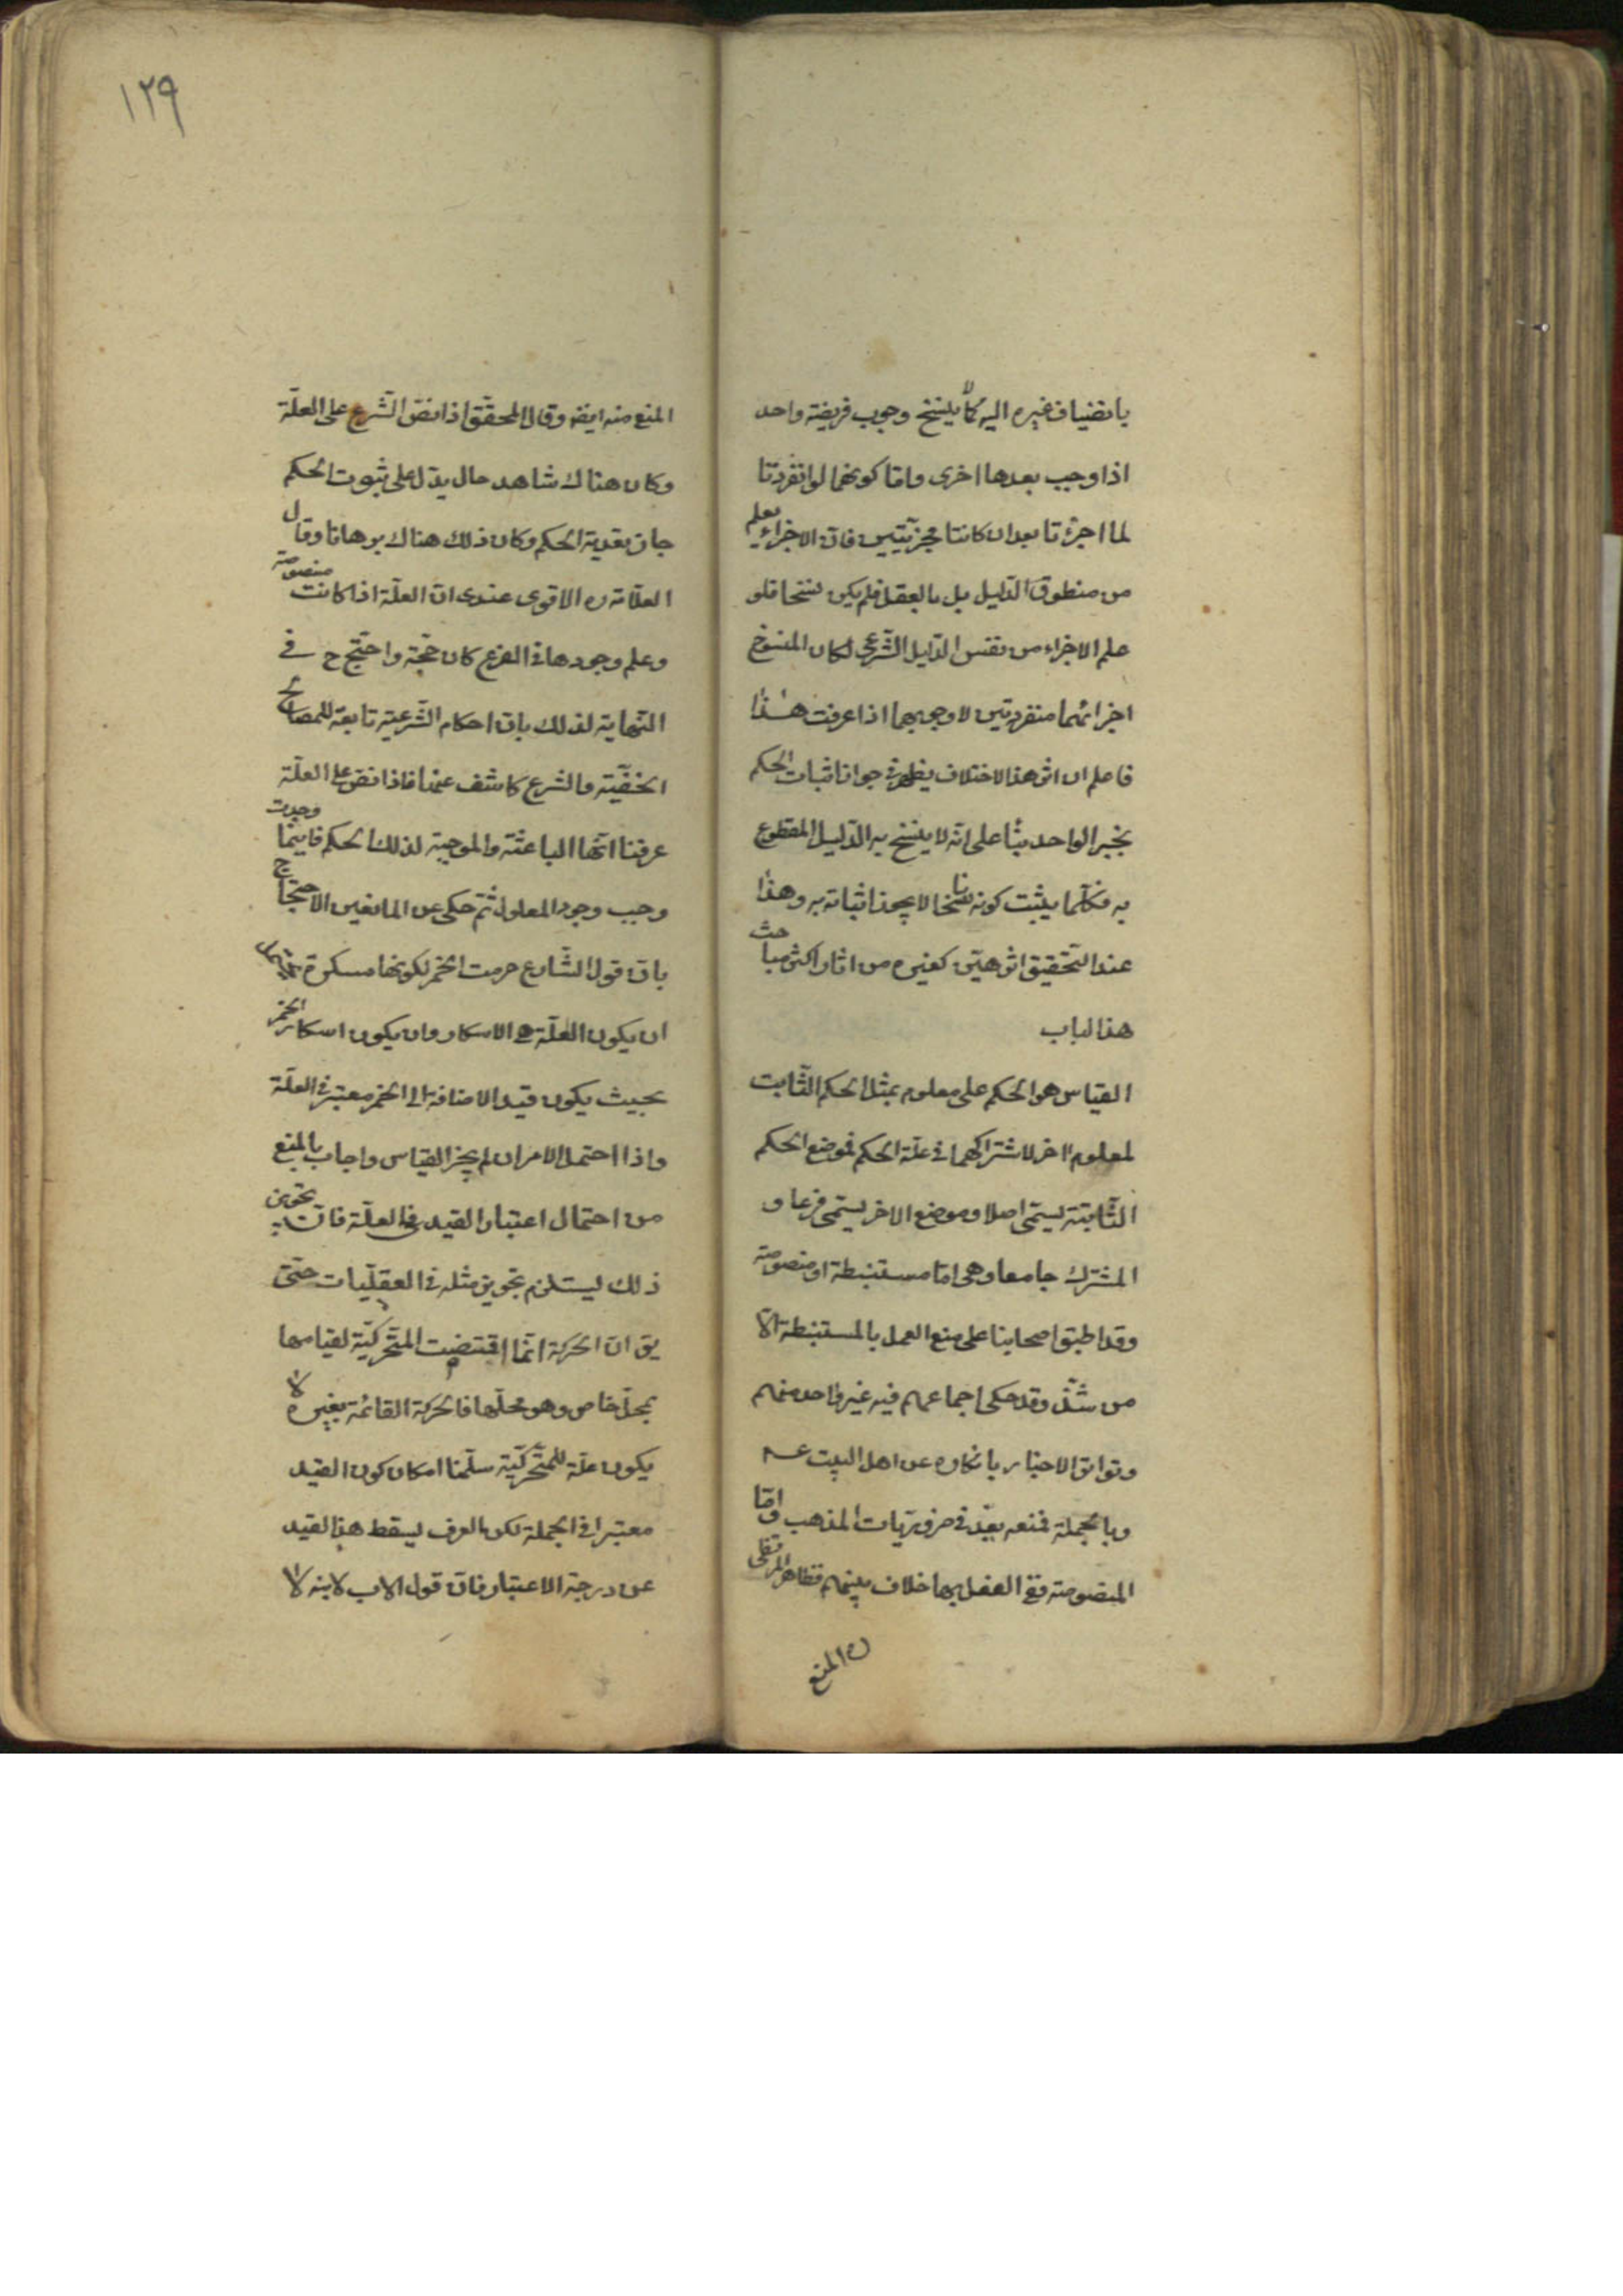 بانضياف غيره اليه كما لا ينسخ وجوب فريضة واحد
اذا وجب بعدها اخرى واما كونهما لو انفردتا
لما اجزئتا بعد ان كانتا مجزيتين فان الاجزاء يعلم
من منطوق الدليل بل بالعقل فلم يكن نسخا فلو
علم الاجزاء من نفس الدليل الشرعى لكان المنسوخ
اجزائهما منفردتين لا وجوبهما اذا عرفت هذا
فاعلم ان اثر هذا الاختلاف يظهر فى جواز اثبات الحكم
بخبر الواحد بناً على انه لا ينسخ به الدليل المقطوع
به فكلما يثبت كونه ناسخا لا يجوز اثباته به وهذا
عند التحقيق اثر هين كغيره من اثار اكثر مباحث
هذا الباب
القياس هو الحكم على معلوم بمثل الحكم الثابت
لمعلوم اخر لاشتراكهما فى علة الحكم فموضع الحكم
الثابتة يسمى اصلا وموضع الاخر يسمى فرعا و
المشترك جامعا وهى اما مستنبطة او منصوصة
وقد اطبق اصحابنا على منع العمل بالمستنبطة الا
من شذ وقد حكى اجماعهم فيه غير واحد منهم
وتواتر الاخبار بانكاره عن اهل البيت عـ
وبالجملة فمنعه يعد فى ضروريات المذهب واما
المنصوصة ففى العمل بها خلاف بينهم فظاهر المرتضى
ره المنع
١٢٩
المنع منه ايضه وقال المحقق اذا نص الشرع على العلة
وكان هناك شاهد حال يدل على ثبوت الحكم
جاز تعدية الحكم وكان ذلك هناك برهانا وقال
العلامة ره الاقوى عندى ان العلة اذا كانت منصوصة
وعلم وجودها فى الفرع كان حجة واحتج ح فى
النهاية لذلك بان احكام الشرعية تابعة للمصالح
الخفية والشرع كاشف عنها فاذا نص على العلة
عرفنا انها الباعثة والموجبة لذلك الحكم فاينما وجدت
وجب وجود المعلول ثم حكى عن المانعين الاحتجاج
بان قول الشارع حرمت الخمر لكونها مسكرة يحتمل
ان يكون العلة هى الاسكار وان يكون اسكار الخمر
بحيث يكون قيد الاضافة الى الخمر معتبر فى العلة
واذا احتمل الامران لم يجز القياس واجاب بالمنع
من احتمال اعتبار القيد فى العلة فان تجويز
ذلك يستلزم تجويز مثله فى العقليات حتى
يق ان الحركة انما اقتضيت المتحركية لقيامها
بمحل خاص وهو محلها فالحركة القائمة بغيره لا
يكون علة للمتحركية سلمنا امكان كون القيد
معتبرا فى الجملة لكن العرف يسقط هذا القيد
عن درجة الاعتبار فان قول الاب لابنه لا